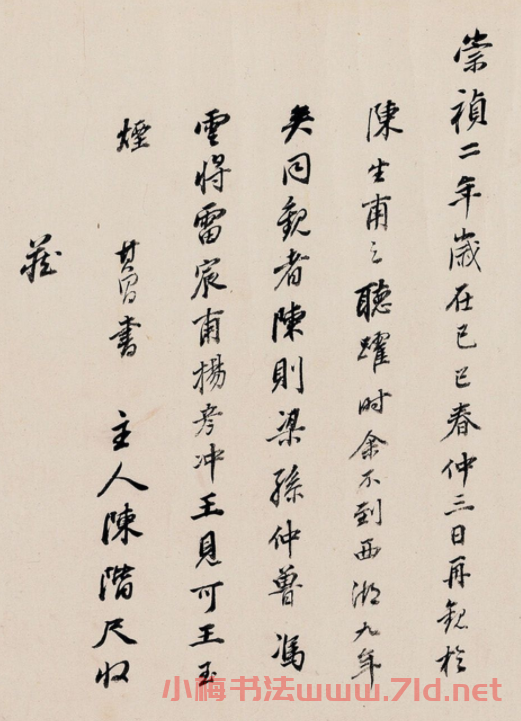 崇禎二年歲在己巳春仲三日再觀於
陳生甫之聽躍時余不到西湖九年
矣同觀者陳則梁孫仲魯馮
雲將雷宸甫楊彥冲王見可王玉
煙 其昌書 主人陳階尺收
藏
小梅书法www.7ld.net